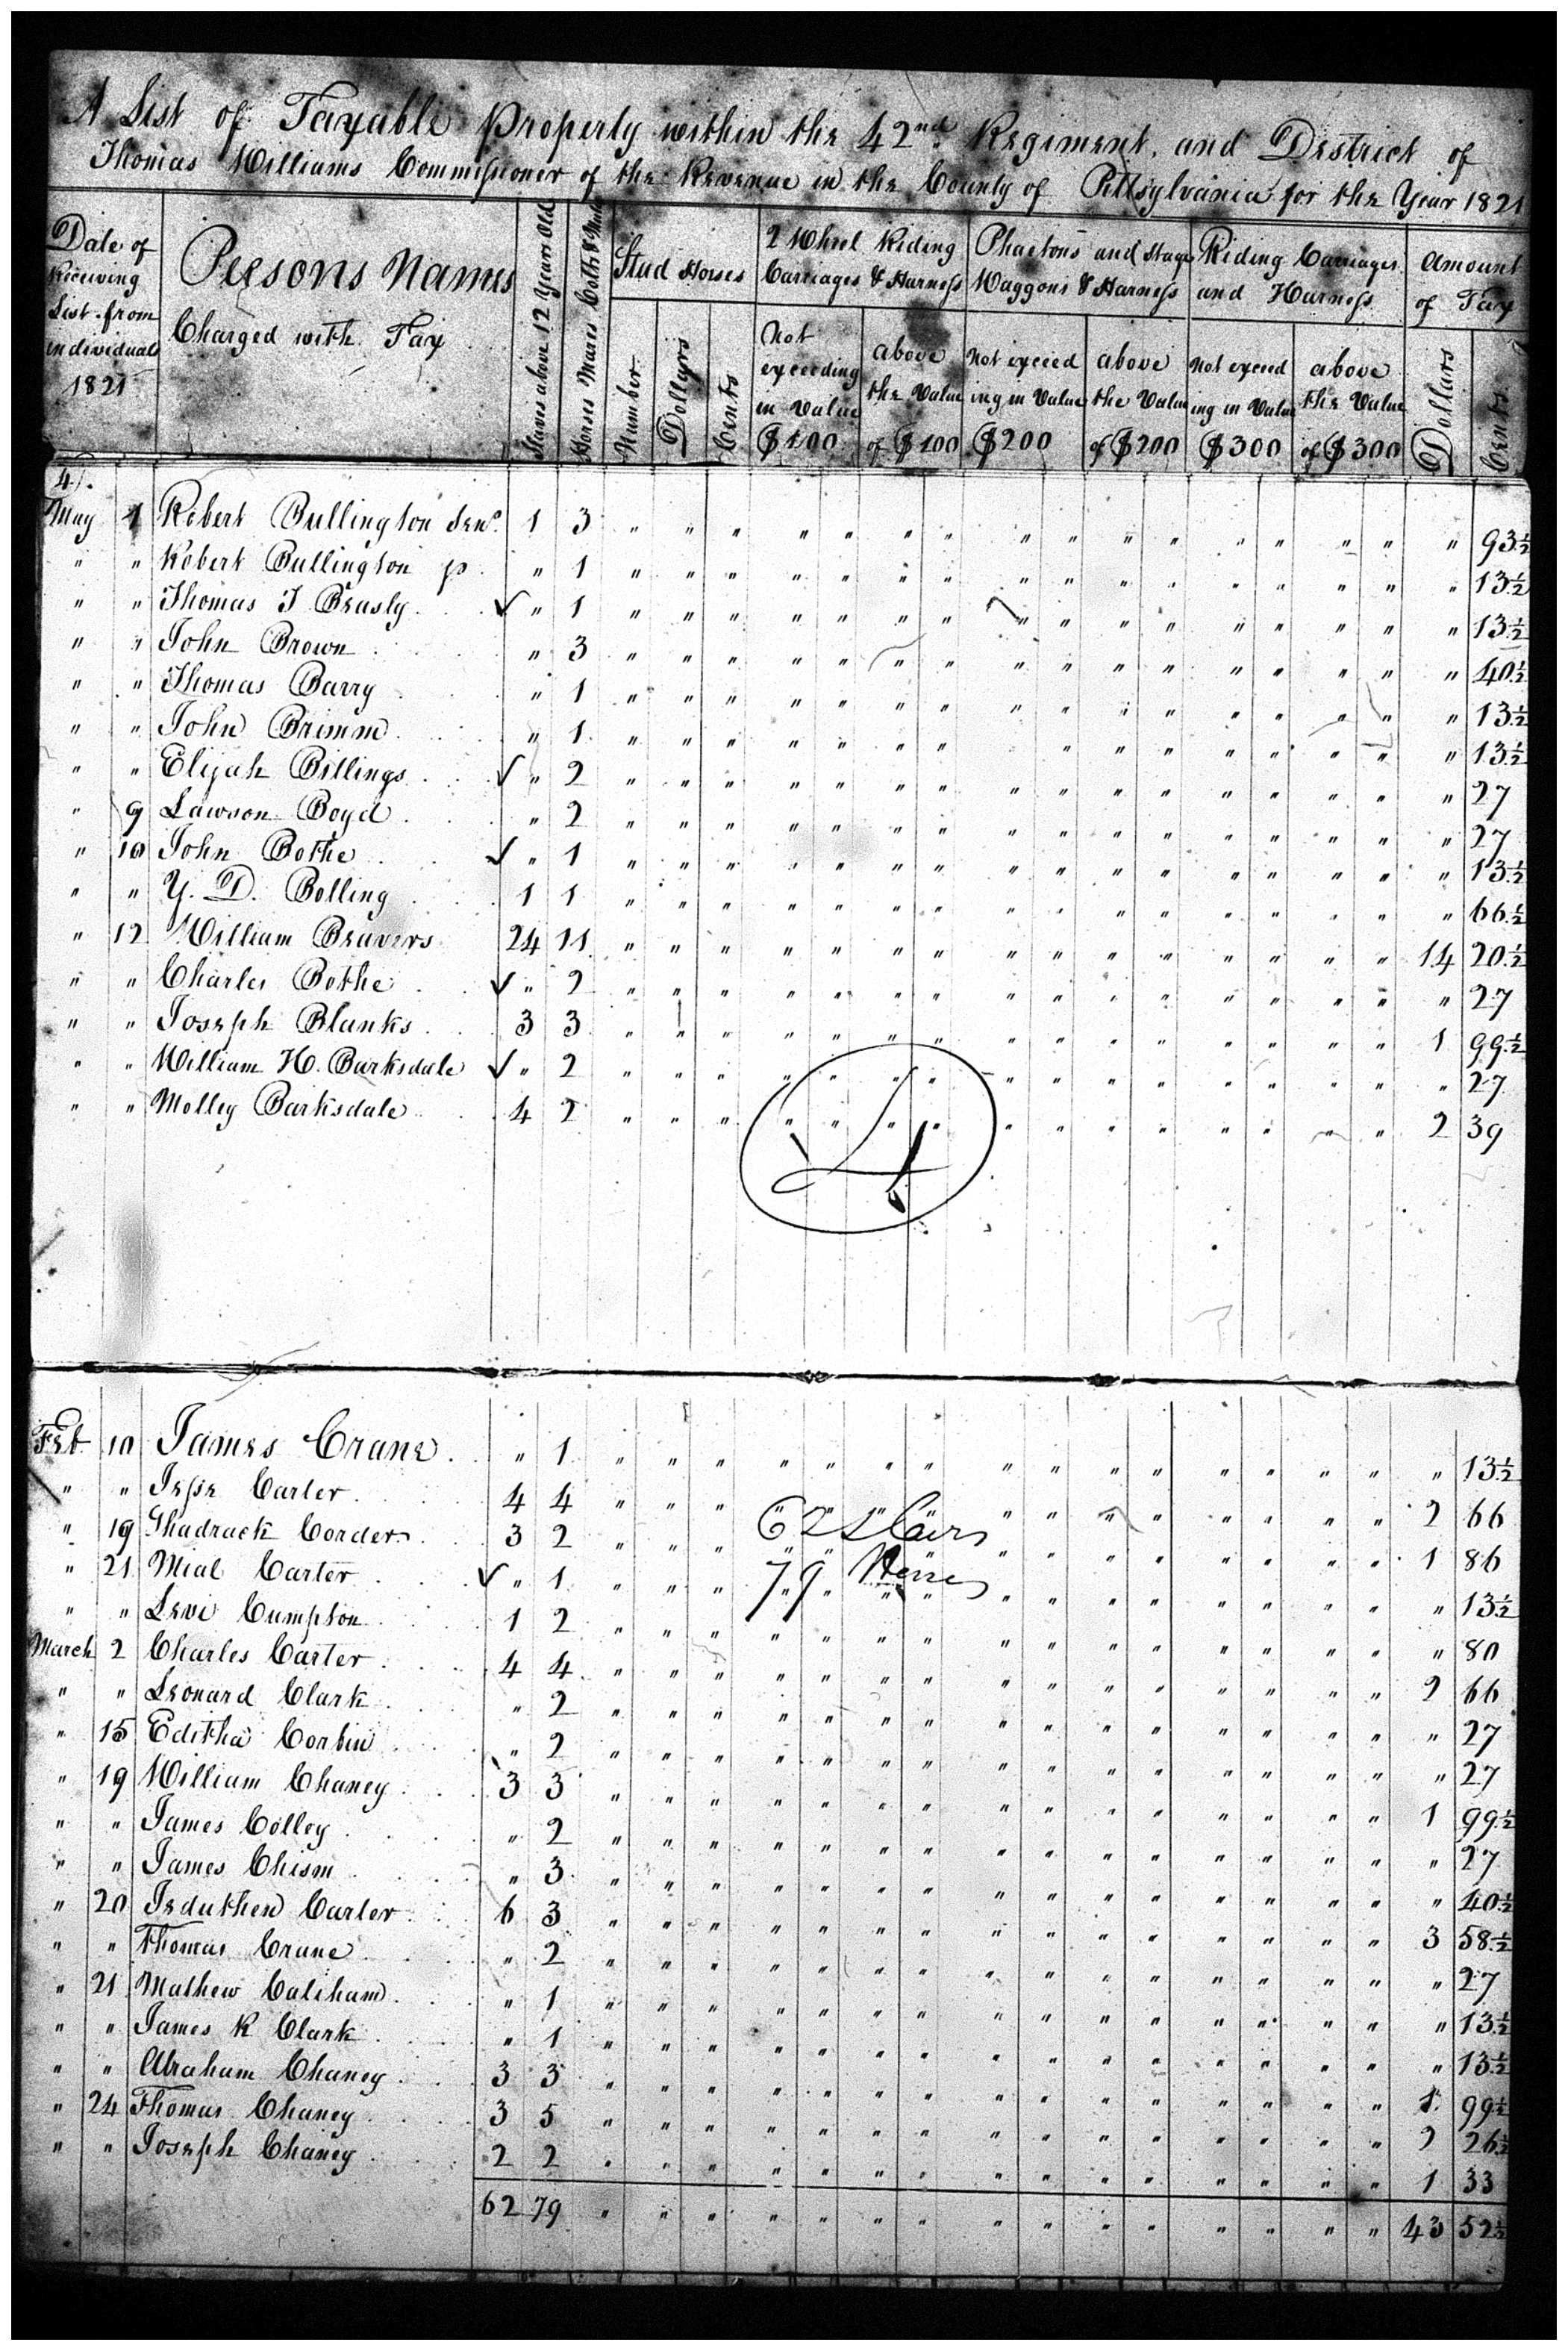 A List of Taxable Property within the 42nd Regiment, and District of
Thomas Williams Commissioner of the Revenue in the County of Pittsylvania for the Year 1821
Date of Receiving List from individuals 1821
Persons Names Charged with Tax
Slaves above 12 Years Old
Horses Mares Colts & Mules
Stud Horses
Number
Dollars
Cents
2 Wheel Riding Carriages & Harness
Not exceeding in Value $100
above the Value of $100
Phaetons and Stage Waggons & Harness
Not exceeding in Value $200
above the Value of $200
Riding Carriages and Harness
Not exceeding in Value $300
above the Value of $300
Amount of Tax
Dollars
Cents
4).
May 1 Robert Bullington Senr. 1 3 " " " " " " " " " " " " " " " " 93½
" " Robert Bullington " 1 " " " " " " " " " " " " " " " " 13½
" " Thomas J Beasly ✓ " 1 " " " " " " " " " " " " " " " " 13½
" " John Brown " 3 " " " " " " " " " " " " " " " " 40½
" " Thomas Barry " 1 " " " " " " " " " " " " " " " " 13½
" " John Brimm " 1 " " " " " " " " " " " " " " " 13½
" " Elijah Billings ✓ " 2 " " " " " " " " " " " " " " " " 27
" 9 Lawson Boyd " 2 " " " " " " " " " " " " " " " " 27
" 10 John Bothe ✓ " 1 " " " " " " " " " " " " " " " " 13½
" " Y. D. Bolling 1 1 " " " " " " " " " " " " " " " " 66½
" 12 William Beavers 24 11 " " " " " " " " " " " " " " " 14 20½
" " Charles Bothe ✓ " 2 " " " " " " " " " " " " " " " " 27
" " Joseph Blanks 3 3 " " " " " " " " " " " " " " " 1 99½
" " William H. Barksdale ✓ " 2 " " " " " " " " " " " " " " " " 27
" " Molley Barksdale 4 2 " " " " " " " " " " " " " " " 2 39
4
Feb 10 James Crane " 1 " " " " " " " " " " " " " " " " 13½
" " Jesse Carter 4 4 " " " " " " " " " " " " " " " 2 66
" 19 Shadrack Corder 3 2 " " " " " " " " " " " " " " " 1 86
62 slaves
" 21 Mial Carter ✓ " 1 " " " " " " " " " " " " " " " " 13½
79 Horses
" " Levi Cumpton 1 2 " " " " " " " " " " " " " " " " 80
March 2 Charles Carter 4 4 " " " " " " " " " " " " " " " 2 66
" " Leonard Clark " 2 " " " " " " " " " " " " " " " " 27
" 15 Editha Corbin " 2 " " " " " " " " " " " " " " " " 27
" 19 William Chaney 3 3 " " " " " " " " " " " " " " " 1 99½
" " James Colley " 2 " " " " " " " " " " " " " " " " 27
" " James Chism " 3 " " " " " " " " " " " " " " " " 40½
" 20 Jeduthen Carter 6 3 " " " " " " " " " " " " " " " 3 58½
" " Thomas Crane " 2 " " " " " " " " " " " " " " " " 27
" 21 Mathew Caliham " 1 " " " " " " " " " " " " " " " " 13½
" " James R Clark " 1 " " " " " " " " " " " " " " " " 13½
" " Abraham Chaney 3 3 " " " " " " " " " " " " " " " 1 99½
" 24 Thomas Chaney 3 5 " " " " " " " " " " " " " " " 2 26½
" " Joseph Chaney 2 2 " " " " " " " " " " " " " " " 1 33
62 79 " " " " " " " " " " " " " " " 43 52½